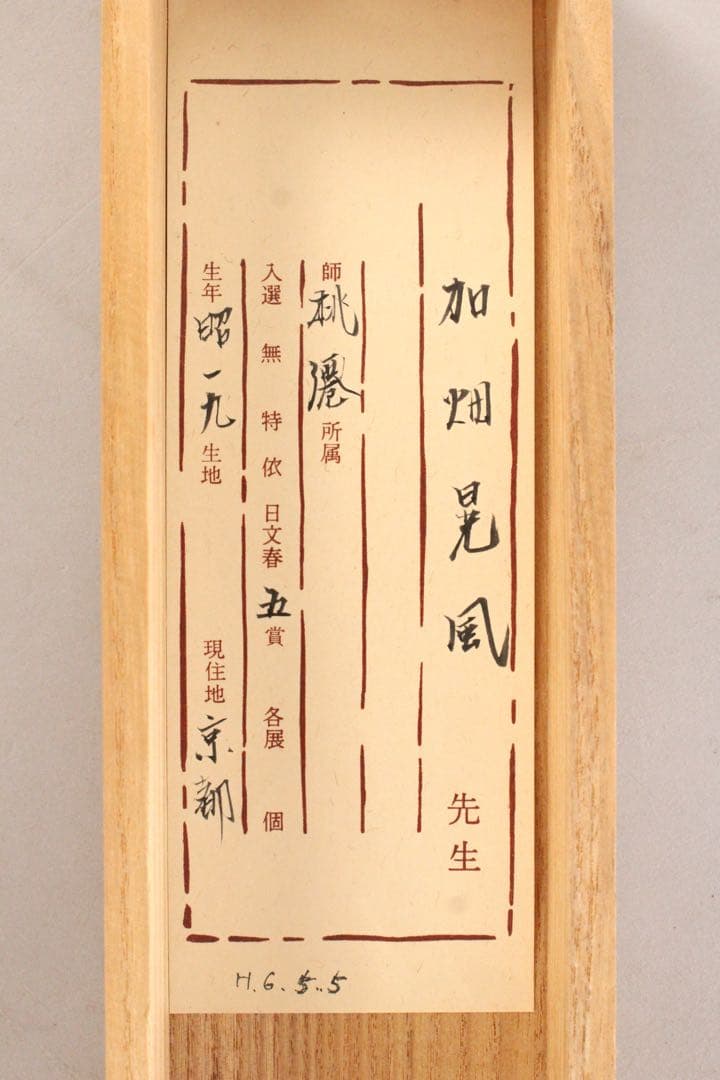 加畑晃風 先生
師 桃隠 所属
入選 無 特 依 日文春 五 賞 各展 個
生年 昭一九 生地 現住地 京都
H.6.5.5